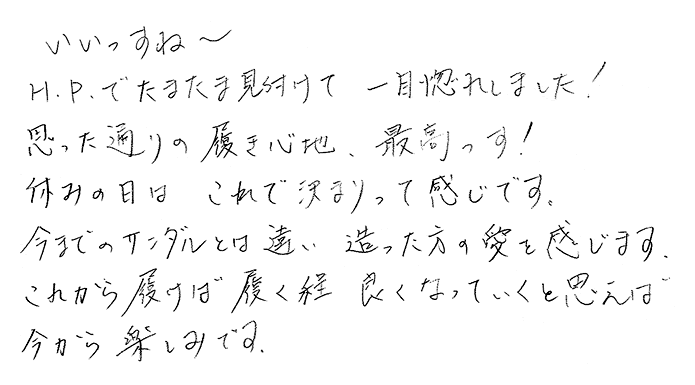 いいっすね～
H.P.でたまたま見付けて 一目惚れしました!
思った通りの履き心地、最高っす!
休みの日は これで決まりって感じです。
今までのサンダルとは違い 造った方の愛を感じます。
これから履けば履く経 良くなっていくと思えば
今から楽しみです。